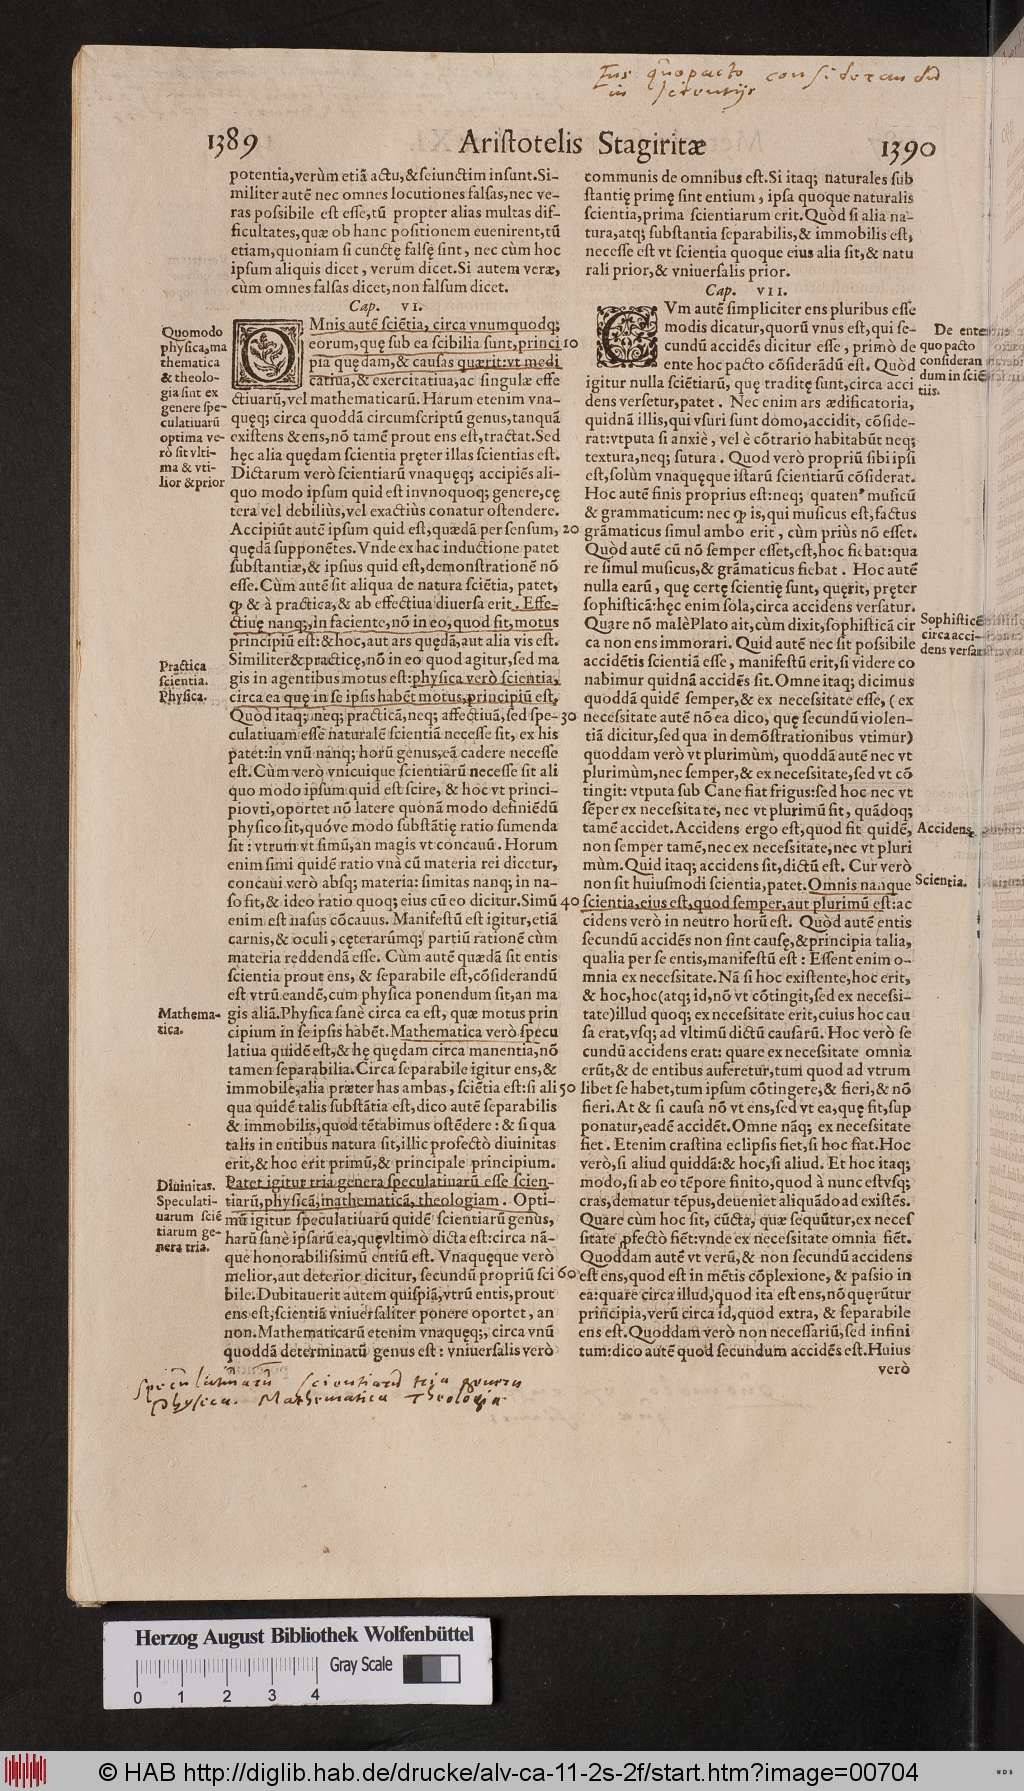 Ens quopacto considerand
in scientijs
1389
Aristotelis Stagiritæ
1390
potentia,verùm etiā actu,&sciunctim insunt.Si-
militer autē nec omnes locutiones falsas,nec ve-
ras possibile est esse,tū propter alias multas dif-
ficultates,quæ ob hanc positionem euenirent,tū
etiam,quoniam si cunctę falsę sint, nec cùm hoc
ipsum aliquis dicet, verum dicet.Si autem veræ,
cùm omnes falsas dicet,non falsum dicet.
Cap. VI.
OMnis autē sciētia, circa vnumquodq;
eorum,quę sub ea scibilia sunt,princi
pia quędam,& causas quærit:vt medi
catiua,& exercitatiua,ac singulæ effe
ctiuarū,vel mathematicarū. Harum etenim vna-
quęq; circa quoddā circumscriptū genus,tanquā
existens &ens,nō tamē prout ens est,tractat.Sed
hęc alia quędam scientia pręter illas scientias est.
Dictarum verò scientiarū vnaquęq; accipiēs ali-
quo modo ipsum quid est invnoquoq; genere,cę
tera vel debiliùs,vel exactiùs conatur ostendere.
Accipiūt autē ipsum quid est,quædā per sensum,
quędā supponētes.Vnde ex hac inductione patet
substantiæ,& ipsius quid est,demonstrationē nō
esse.Cùm autē sit aliqua de natura sciētia, patet,
ꝙ & à practica,& ab effectiua diuersa erit. Effe-
ctiuę nanq;,in faciente,nō in eo,quod fit,motus
principiū est:&hoc,aut ars quędā,aut alia vis est.
Similiter&practicę,nō in eo quod agitur,sed ma
gis in agentibus motus est:physica verò scientia,
circa ea quę in se ipsis habēt motus,principiū est.
Quòd itaq; neq; practicā,neq; affectiuā,sed spe-
culatiuam esse naturalē scientiā necesse sit, ex his
patet:in vnū nanq; horū genus,eā cadere necesse
est.Cùm verò vnicuique scientiarū necesse sit ali
quo modo ipsum quid est scire, & hoc vt princi-
piovti,oportet nō latere quonā modo definiēdū
physico sit,quóve modo substātię ratio sumenda
sit: vtrum vt simū,an magis vt concauū. Horum
enim simi quidē ratio vnà cū materia rei dicetur,
concaui verò absq; materia: simitas nanq; in na-
so fit,& ideo ratio quoq; eius cū eo dicitur.Simū
enim est nasus cōcauus. Manifestū est igitur,etiā
carnis,& oculi, cęterarúmq; partiū rationē cùm
materia reddendā esse. Cùm autē quædā sit entis
scientia prout ens, & separabile est,cōsiderandū
est vtrū eandē,cum physica ponendum sit,an ma
gis aliā.Physica sanè circa ea est, quæ motus prin
cipium in se ipsis habēt.Mathematica verò specu
latiua quidē est,& hę quędam circa manentia,nō
tamen separabilia.Circa separabile igitur ens,&
immobile,alia præter has ambas, sciētia est:si ali
qua quidē talis substātia est,dico autē separabilis
& immobilis,quod tētabimus ostēdere: & si qua
talis in entibus natura sit,illic profectò diuinitas
erit,& hoc erit primū,& principale principium.
Patet igitur tria genera speculatiuarū esse scien-
tiarū,physicā,mathematicā,theologiam. Opti-
mū igitur speculatiuarū quidē scientiarū genus,
harū sanè ipsarū ea,quęvltimò dicta est:circa nā-
que honorabilissimū entiū est. Vnaquęque verò
melior,aut deterior dicitur, secundū propriū sci
bile.Dubitauerit autem quispiā,vtrū entis,prout
ens est,scientiā vniuersaliter ponere oportet, an
non.Mathematicarū etenim vnaquęq;, circa vnū
quoddā determinatū genus est: vniuersalis verò
Quomodo
physica,ma
thematica
& theolo-
gia sint ex
genere spe-
culatiuarū
optima ve-
rò sit vlti-
ma & vti-
lior &prior
Practica
scientia.
Physica.
Mathema-
tica.
Diuinitas.
Speculati-
uarum sciē
tiarum ge-
nera tria.
10
20
30
40
50
60
communis de omnibus est.Si itaq; naturales sub
stantię primę sint entium, ipsa quoque naturalis
scientia,prima scientiarum erit.Quòd si alia na-
tura,atq; substantia separabilis,& immobilis est,
necesse est vt scientia quoque eius alia sit,& natu
rali prior,& vniuersalis prior.
Cap. VII.
CVm autē simpliciter ens pluribus esse
modis dicatur,quorū vnus est,qui se-
cundū accidēs dicitur esse, primò de
ente hoc pacto cōsiderādū est. Quòd
igitur nulla sciētiarū, quę traditę sunt,circa acci
dens versetur,patet. Nec enim ars ædificatoria,
quidnā illis,qui vsuri sunt domo,accidit, cōside-
rat:vtputa si anxiè, vel è cōtrario habitabūt neq;
textura,neq; sutura. Quod verò propriū sibi ipsi
est,solùm vnaquęque istarū scientiarū cōsiderat.
Hoc autē finis proprius est:neq; quaten⁹ musicū
& grammaticum: nec ꝙ is,qui musicus est,factus
grāmaticus simul ambo erit, cùm priùs nō esset.
Quòd autē cū nō semper esset,est,hoc fiebat:qua
re simul musicus,& grāmaticus fiebat. Hoc autē
nulla earū, quę certę scientię sunt, quęrit, pręter
sophisticā:hęc enim sola,circa accidens versatur.
Quare nō malèPlato ait,cùm dixit,sophisticā cir
ca non ens immorari. Quid autē nec sit possibile
accidētis scientiā esse, manifestū erit,si videre co
nabimur quidnā accidēs sit.Omne itaq; dicimus
quoddā quidē semper,& ex necessitate esse, (ex
necessitate autē nō ea dico, quę secundū violen-
tiā dicitur,sed qua in demōstrationibus vtimur)
quoddam verò vt plurimùm, quoddā autē nec vt
plurimùm,nec semper,& ex necessitate,sed vt cō
tingit: vtputa sub Cane fiat frigus:sed hoc nec vt
sēper ex necessitate, nec vt plurimū fit, quādoq;
tamē accidet.Accidens ergo est,quod fit quidē,
non semper tamē,nec ex necessitate,nec vt pluri
mùm.Quid itaq; accidens sit,dictū est. Cur verò
non sit huiusmodi scientia,patet.Omnis nanque
scientia,eius est,quod semper,aut plurimū est:ac
cidens verò in neutro horū est. Quòd autē entis
secundū accidēs non sint causę,&principia talia,
qualia per se entis,manifestū est: Essent enim o-
mnia ex necessitate.Nā si hoc existente,hoc erit,
& hoc,hoc(atq; id,nō vt cōtingit,sed ex necessi-
tate)illud quoq; ex necessitate erit,cuius hoc cau
sa erat,vsq; ad vltimū dictū causarū. Hoc verò se
cundū accidens erat: quare ex necessitate omnia
erūt,& de entibus auferetur,tum quod ad vtrum
libet se habet,tum ipsum cōtingere,& fieri,& nō
fieri.At & si causa nō vt ens,sed vt ea,quę fit,sup
ponatur,eadē accidēt.Omne nāq; ex necessitate
fiet. Etenim crastina eclipsis fiet,si hoc fiat.Hoc
verò,si aliud quiddā:& hoc,si aliud. Et hoc itaq;
modo,si ab eo tēpore finito,quod à nunc estvsq;
cras,dematur tēpus,deueniet aliquādo ad existēs.
Quare cùm hoc sit, cūcta, quæ sequūtur,ex neces
sitate ꝓfectò fiēt:vnde ex necessitate omnia fiēt.
Quoddam autē vt verū,& non secundū accidens
est ens,quod est in mētis cōplexione, & passio in
ea:quare circa illud,quod ita est ens,nō quęrūtur
principia,verū circa id,quod extra, & separabile
ens est.Quoddam verò non necessariū,sed infini
tum:dico autē quod secundum accidēs est.Huius
verò
De ente
quo pacto
consideran
dum in sciē
tiis.
Sophisticē
circa acci-
dens versa
Accidens
Scientia.
Speculatiuarū scientiarū tria genera
Physica. Mathematica Theologia
Herzog August Bibliothek Wolfenbüttel
Gray Scale
0 1 2 3 4
© HAB http://diglib.hab.de/drucke/alv-ca-11-2s-2f/start.htm?image=00704